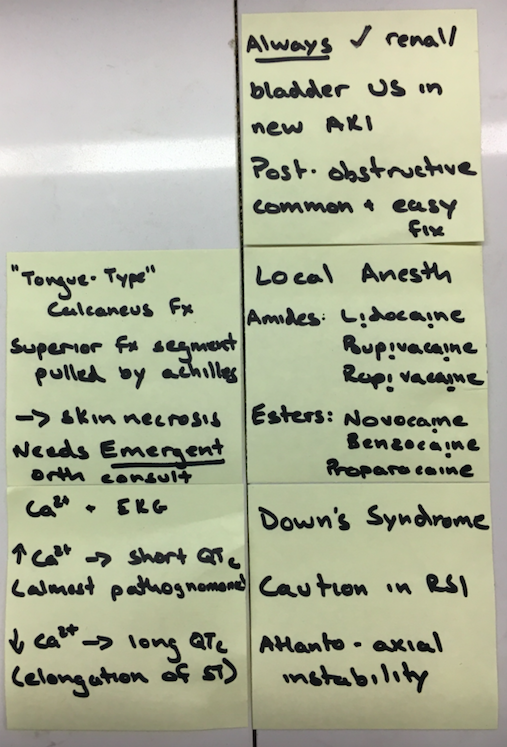 Always ✓ renal/
bladder US in
new AKI
Post-obstructive
common + easy
fix
"Tongue-Type"
Calcaneus Fx
Superior Fx segment
pulled by achilles
→ skin necrosis
Needs Emergent
orth consult
Local Anesth
Amides: Lidocaine
Bupivacaine
Ropivacaine
Esters: Novocaine
Benzocaine
Proparacaine
Ca²⁺ + EKG
↑ Ca²⁺ → short QTc
(almost pathognomonic
↓ Ca²⁺ → long QTc
(elongation of ST)
Down's Syndrome
Caution in RSI
Atlanto-axial
instability